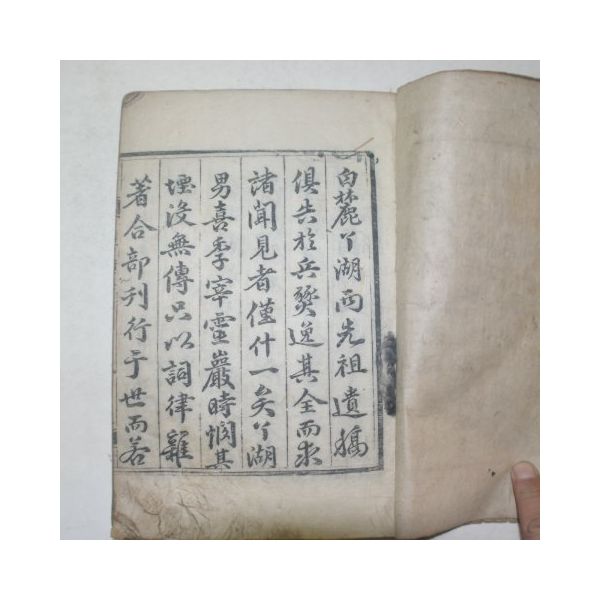 白麓丫湖兩先祖遺稿
俱失於兵燹逸其全而求
諸聞見者僅什一矣丫湖
男喜季宰靈巖時憫其
堙沒無傳只以詞律雜
著合部刊行于世而若